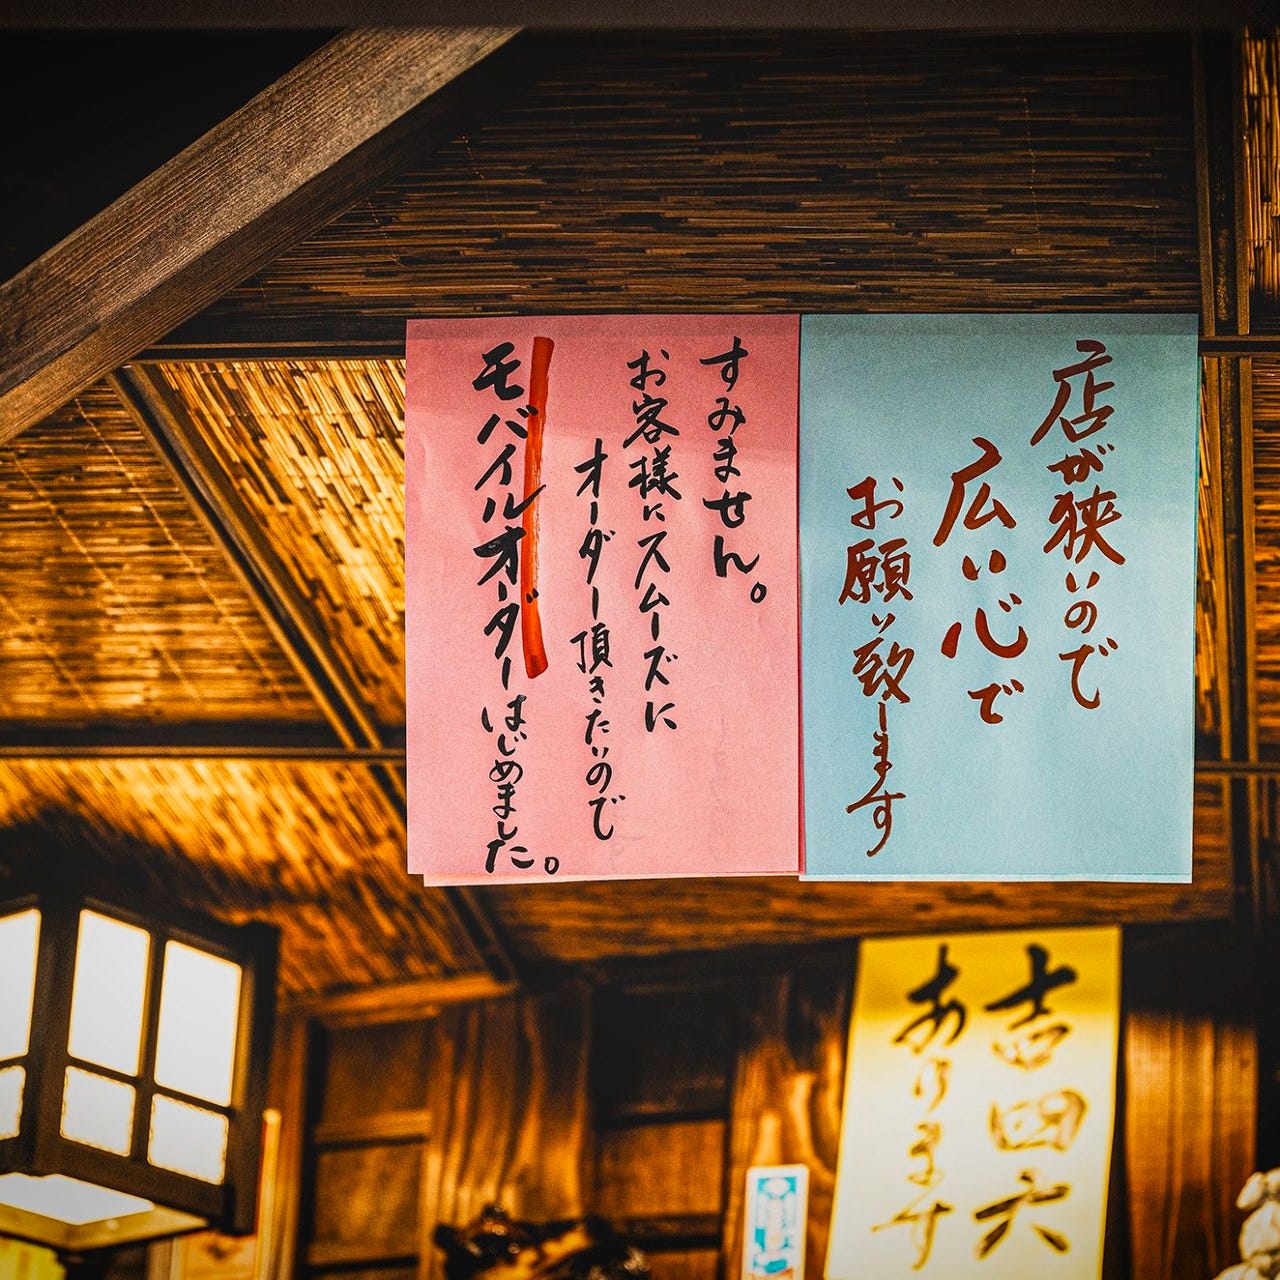 店が狭いので
広い心で
お願い致します
すみません。
お客様にスムーズに
オーダー頂きたいので
モバイルオーダーはじめました。
吉四六
あります